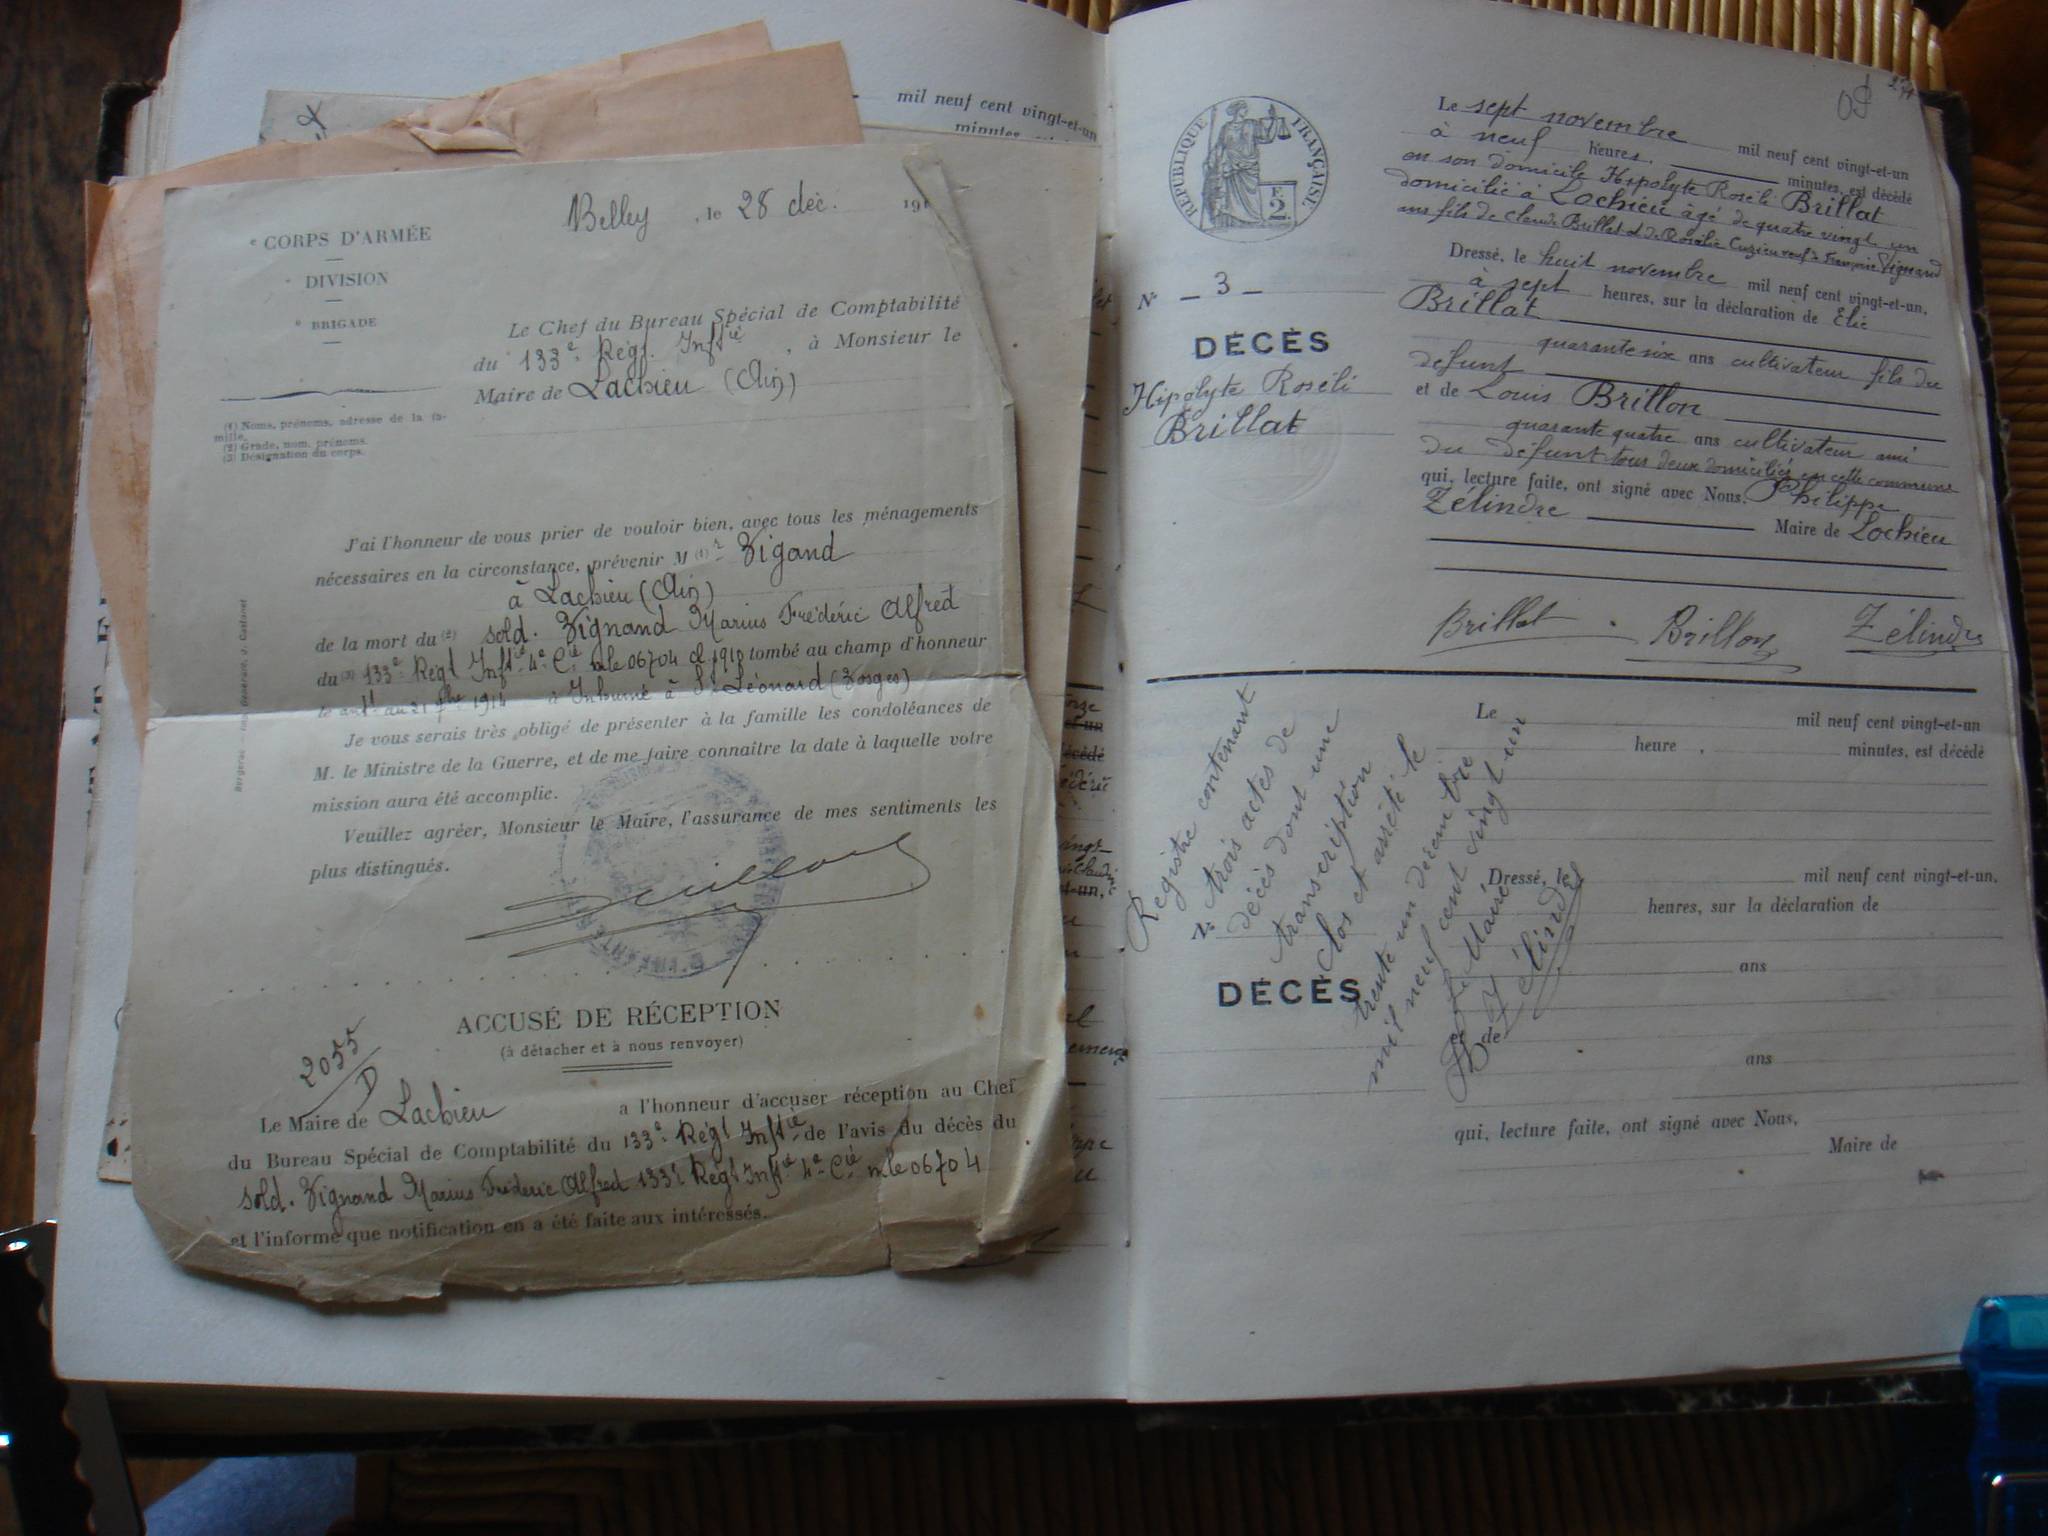 Belley, le 28 déc. 191
e CORPS D'ARMÉE
e DIVISION
e BRIGADE
(1) Noms, prénoms, adresse de la fa-
mille.
(2) Grade, nom, prénoms.
(3) Désignation du corps.
Le Chef du Bureau Spécial de Comptabilité
du 133e Régt. Inftie, à Monsieur le
Maire de Lachieu (Ain)
J'ai l'honneur de vous prier de vouloir bien, avec tous les ménagements
nécessaires en la circonstance, prévenir M (1) r Vigand
à Lachieu (Ain)
de la mort du (2) sold. Vignand Marius Frédéric Alfred
du (3) 133e Régt Inftie 4e Cie mle 06704 cl 1910 tombé au champ d'honneur
le antt au 21 9bre 1914 à Inhumé à St Léonard (Vosges)
Je vous serais très obligé de présenter à la famille les condoléances de
M. le Ministre de la Guerre, et de me faire connaître la date à laquelle votre
mission aura été accomplie.
Veuillez agréer, Monsieur le Maire, l'assurance de mes sentiments les
plus distingués.
ACCUSÉ DE RÉCEPTION
(à détacher et à nous renvoyer)
2055
D
Le Maire de Lachieu a l'honneur d'accuser réception au Chef
du Bureau Spécial de Comptabilité du 133e Régt Inftie de l'avis du décès du
sold. Vignand Marius Frédéric Alfred 133e Régt Inftie 4e Cie mle 06704
et l'informe que notification en a été faite aux intéressés.
mil neuf cent vingt-et-un
minutes
RÉPUBLIQUE FRANÇAISE
F.
2
No 3
DÉCÈS
Hipolyte Roseli
Brillat
Le sept novembre mil neuf cent vingt-et-un
à neuf heures, minutes, est décédé
en son domicile Hipolyte Roseli Brillat
domicilié à Lochieu âgé de quatre vingt un
ans fils de Claude Brillat et de Rosalie Cuzieu veuf de Françoise Vignand
Dressé, le huit novembre mil neuf cent vingt-et-un,
à sept heures, sur la déclaration de Elie
Brillat
quarante six ans cultivateur fils du
défunt
et de Louis Brillon
quarante quatre ans cultivateur ami
du défunt tous deux domiciliés en cette commune
qui, lecture faite, ont signé avec Nous, Philippe
Zélindre Maire de Lochieu
Brillat Brillon Zélindre
Le mil neuf cent vingt-et-un
heure, minutes, est décédé
Dressé, le mil neuf cent vingt-et-un,
heures, sur la déclaration de
ans
et de
ans
qui, lecture faite, ont signé avec Nous,
Maire de
No
DÉCÈS
Registre contenant
trois actes de
décès dont une
transcription
Clos et arrêté le
trente un décembre
mil neuf cent vingt un
Le Maire
Zélindre